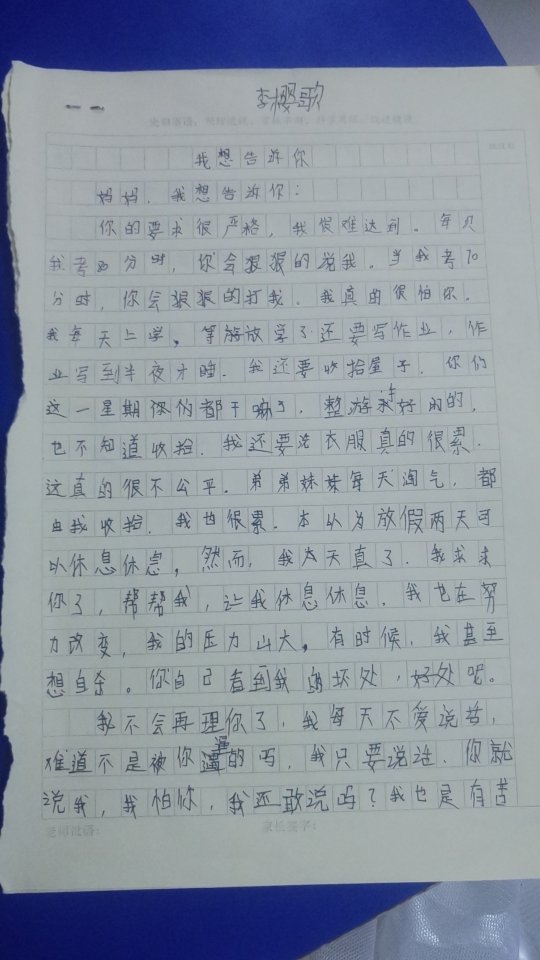 李樱歌
我想告诉你
妈妈，我想告诉你：
你的要求很严格，我很难达到。每次
我考80分时，你会狠狠的说我。当我考70
分时，你会狠狠的打我。我真的很怕你。
我每天上学。等放学了还要写作业，作
业写到半夜才睡。我还要收拾屋子。你们
这一星期你们都干嘛了，整的，
也不知道收拾。我还要洗衣服真的很累。
这真的很不公平。弟弟妹妹每天淘气，都
由我收拾。我也很累。本以为放假两天可
以休息休息，然而，我太天真了。我求求
你了，帮帮我，让我休息休息。我也在努
力改变，我的压力山大。有时候，我甚至
想自杀。你自己看到我坏处，好处呢。
我不会再理你了，我每天不爱说苦，
难道不是被你逼的吗，我只要说话，你就
说我，我怕你，我还敢说吗？我也是有苦
老师批语： 家长签字：